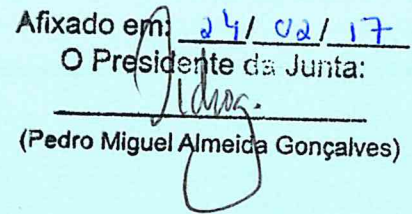 Afixado em: 24/02/17
O Presidente da Junta:
(Pedro Miguel Almeida Gonçalves)